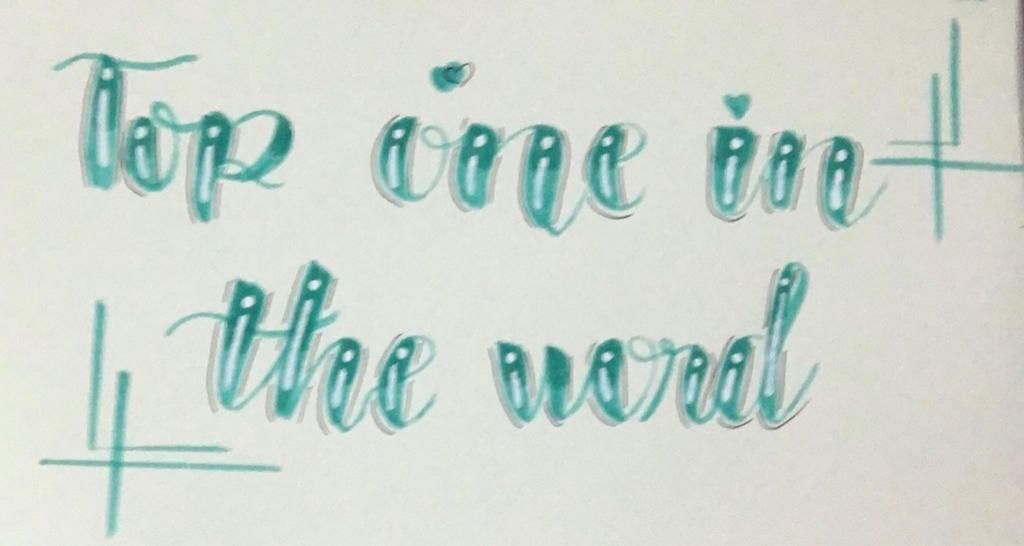 Top one in
the word